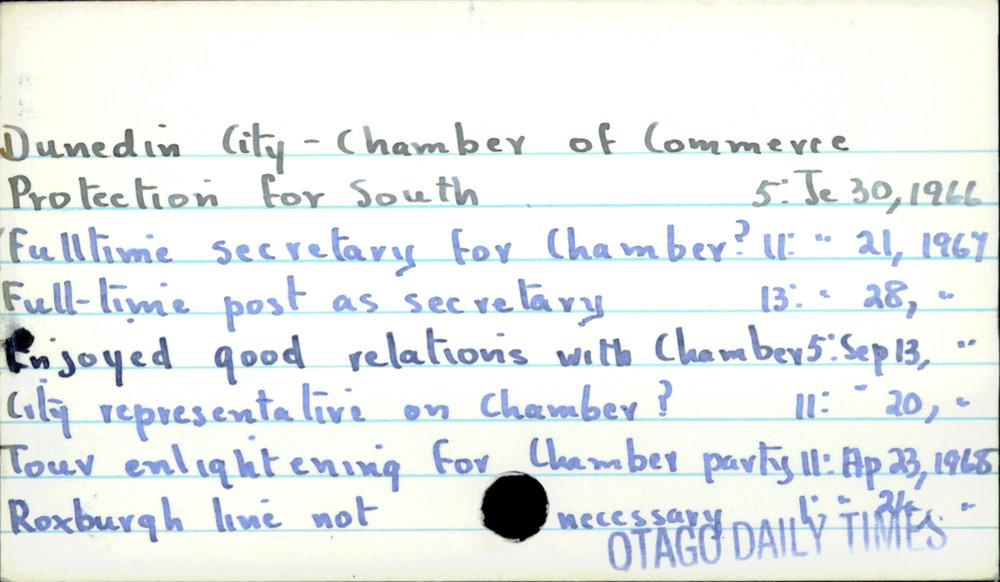 Dunedin City - Chamber of Commerce
Protection for South 5: Je 30, 1966
Fulltime secretary for Chamber? 11: " 21, 1967
Full-time post as secretary 13: " 28, "
Enjoyed good relations with Chamber 5: Sep 13, "
City representative on Chamber? 11: " 20, "
Tour enlightening for Chamber party 11: Ap 23, 1968
Roxburgh line not necessary 1: " 24, "
OTAGO DAILY TIMES